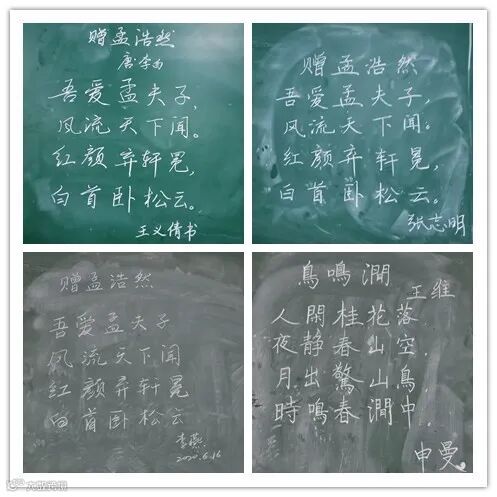 赠孟浩然
唐李白
吾爱孟夫子，
风流天下闻。
红颜弃轩冕，
白首卧松云。
王义倩书
赠孟浩然
吾爱孟夫子，
风流天下闻。
红颜弃轩冕，
白首卧松云。
张志明
赠孟浩然
吾爱孟夫子
风流天下闻
红颜弃轩冕
白首卧松云
李燕
2020.6.16
鳥鳴澗
王维
人閑桂花落
夜静春山空，
月出驚山鳥，
時鳴春澗中，
申曼